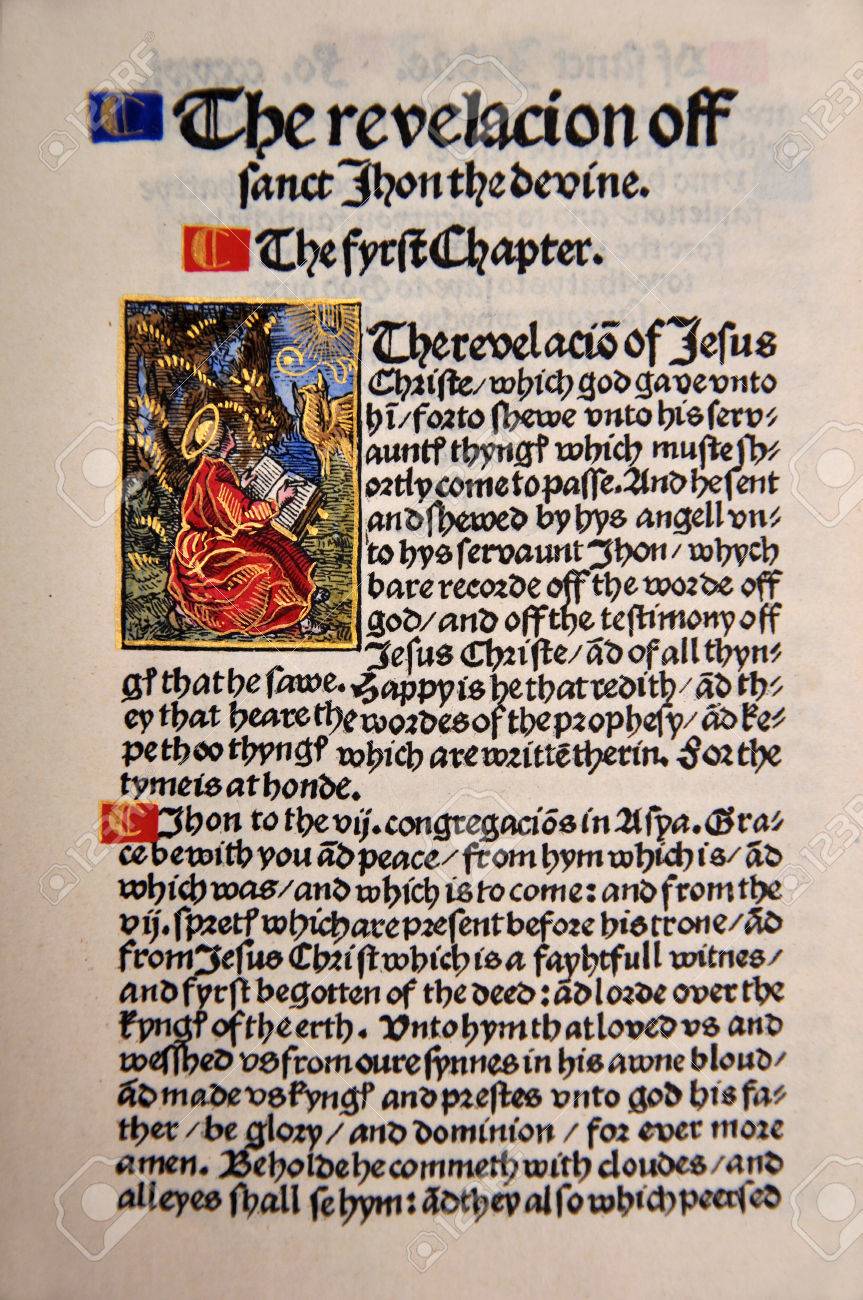 The revelacion off
sanct Jhon the devine.
The fyrst Chapter.
The revelaciō of Jesus
Christe/ which god gave vnto
hī/ for to shewe vnto his serv⸗
auntꝭ thyngꝭ which muste sh⸗
ortly come to passe. And he sent
and shewed by hys angell vn⸗
to hys servaunt Jhon/ whych
bare recorde off the worde off
god/ and off the testimony off
Jesus Christe/ ād of all thyn⸗
gꝭ that he sawe. Happy is he that redith/ ād th⸗
ey that heare the wordes of the prophesy/ ād ke⸗
pe thoo thyngꝭ which are writtē therin. For the
tyme is at honde.
Jhon to the vij. congregaciōs in Asya. Gra⸗
ce be with you ād peace/ from hym which is/ ād
which was/ and which is to come: and from the
vij. spretꝭ which are present before his trone/ ād
from Jesus Christ which is a fayhtfull witnes/
and fyrst begotten of the deed: ād lorde over the
kyngꝭ of the erth. Vnto hym that loved vs and
wesshed vs from oure synnes in his awne bloud/
ād made vs kyngꝭ and prestes vnto god his fa⸗
ther / be glory / and dominion / for ever more
amen. Beholde he commeth with cloudes/ and
all eyes shall se hym: ād they also which peersed
123RF